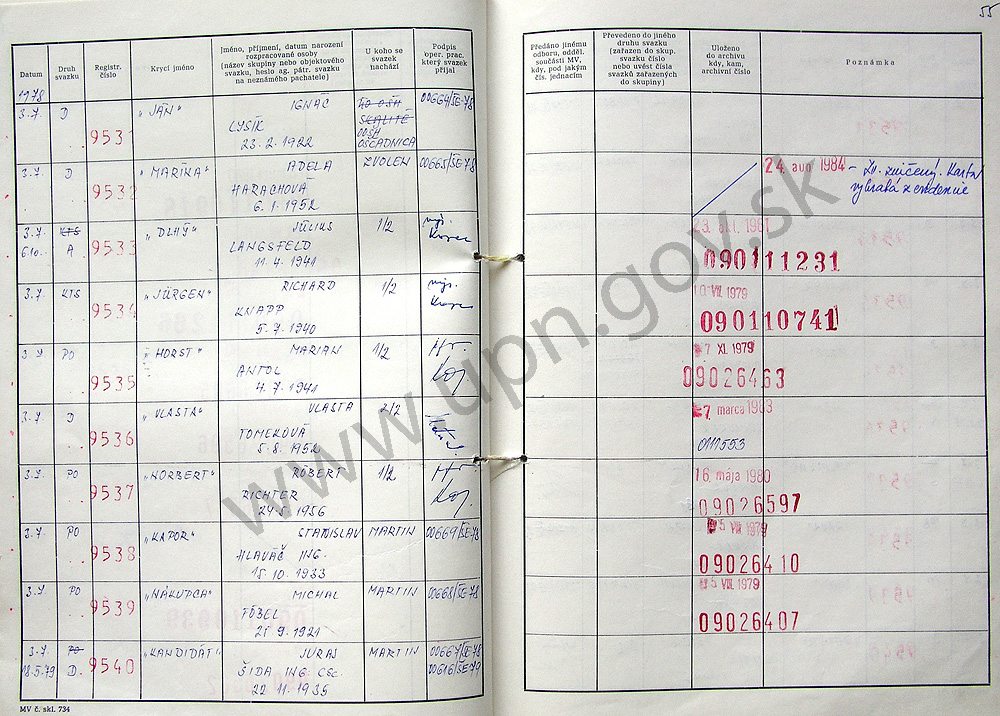 55
Datum
Druh svazku
Registr. číslo
Krycí jméno
Jméno, příjmení, datum narození
rozpracované osoby
(název skupiny nebo objektového
svazku, heslo ag. pátr. svazku
na neznámého pachatele)
U koho se svazek nachází
Podpis oper. prac. který svazek přijal
Předáno jinému
odboru, odděl.
součásti MV,
kdy, pod jakým
čís. jednacím
Převedeno do jiného
druhu svazku
(zařazen do skup.
svazku číslo
nebo uvést čísla
svazků zařazených
do skupiny)
Uloženo
do archivu
kdy, kam,
archivní číslo
Poznámka
1978
3.7. D 9531 „JÁN" IGNÁC
LYSÍK
23. 2. 1922
OO ŠH
SKALITÉ
OOŠH
OŠČADNICA
00664/ŠE-78
3.7. D 9532 „MARÍNA" ADELA
HARACHOVÁ
6. 1. 1952
ZVOLEN 00665/ŠE-78
24. aug 1984 – Zv. zničený. Karta
vybratá z evidencie
3.7. KTS 9533 „DLHÝ" JÚLIUS
6.10. A
LANGSFELD
11. 4. 1941
1/2
23. okt. 1981
090111231
3.7. KTS 9534 „JÜRGEN" RICHARD
KNAPP
5. 7. 1940
1/2
10 VII 1979
090110741
3.7 PO 9535 „HORST" MARIAN
ANTOL
4. 7. 1941
1/2
7 XI. 1979
09026463
3.7. D 9536 „VLASTA" VLASTA
TOMEKOVÁ
5. 8. 1952
2/2
7. marca 1983
0111553
3.7. PO 9537 „NORBERT" RÓBERT
RICHTER
24. 5. 1956
1/2
16. mája 1980
09026597
3.7 PO 9538 „KAPOR" STANISLAV
HLAVÁČ ING.
15. 10. 1933
MARTIN 00669/ŠE-78
5 VII 1979
09026410
3.7 PO 9539 „NÁKUPCA" MICHAL
FÓBEL
21. 9. 1921
MARTIN 00668/ŠE-78
5 VIII. 1979
09026407
3.7 PO 9540 „KANDIDÁT" JURAJ
18.5.79 D.
ŠIDA ING. CSc.
22. 11. 1935
MARTIN 00667/ŠE-78
00616/ŠE-79
MV č. skl. 734
www.upn.gov.sk